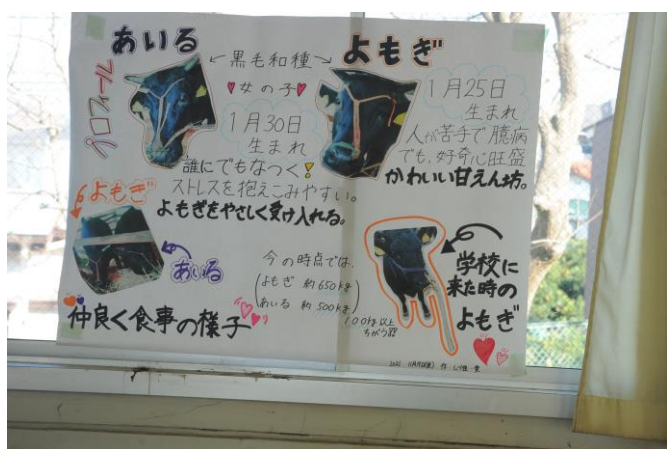 あいる
←黒毛和種→
よもぎ
プロフィール
♥女の子♥
1月30日
生まれ
誰にでもなつく!
ストレスを抱えこみやすい。
よもぎをやさしく受け入れる。
1月25日
生まれ
人が苦手で臆病
でも、好奇心旺盛
かわいい甘えん坊。
よもぎ
あいる
仲良く食事の様子
今の時点では、
(よもぎ 約650kg
あいる 約500kg)
100kg以上
ちがう
学校に
来た時の
よもぎ